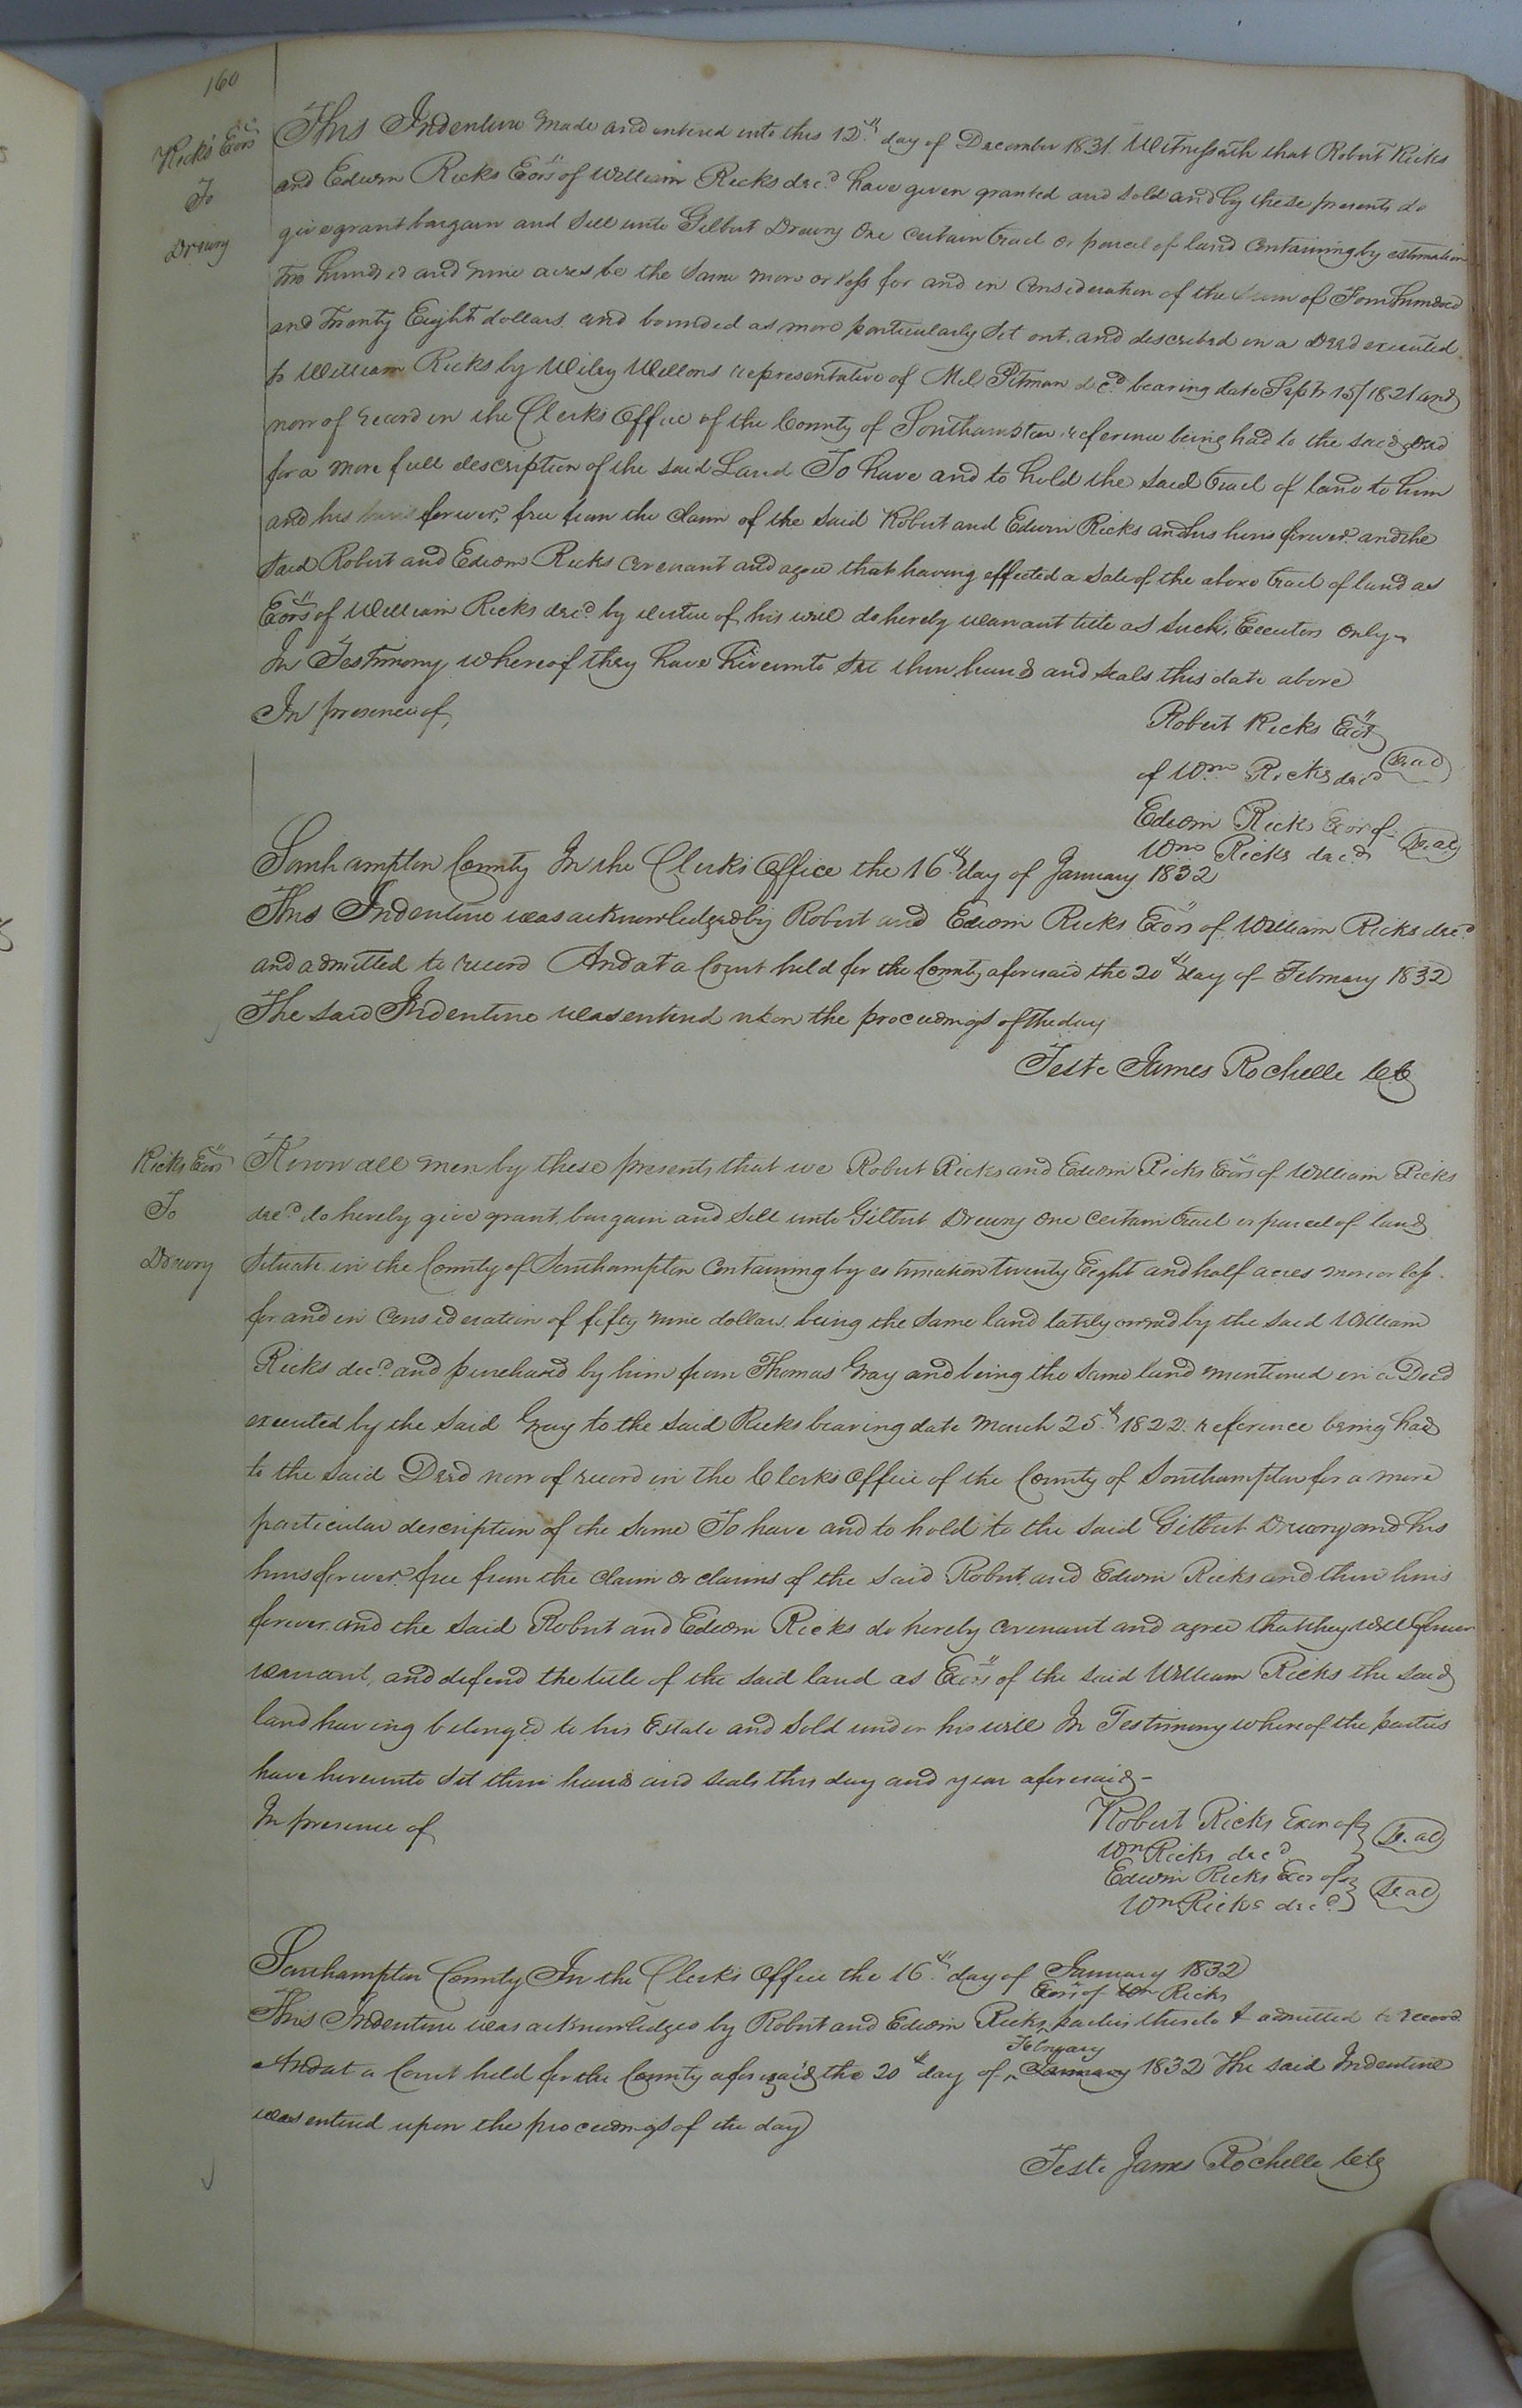 160
Ricks Exors
To
Drewry
This Indenture made and entered into this 12th day of December 1831. Witnesseth that Robert Ricks
and Edwin Ricks Exors of William Ricks decd have given granted and sold and by these presents do
give grant bargain and sell unto Gilbert Drewry One certain tract or parcel of land containing by estimation
two hundred and nine acres be the same more or less for and in consideration of the sum of Four hundred
and twenty Eight dollars and bounded as more particularly set out and described in a deed executed
to William Ricks by Wiley Wellons representative of Mil Pitman decd bearing date Septr 15/1821 and
now of record in the Clerks Office of the County of Southampton reference being had to the said deed
for a more full description of the said Land To have and to hold the said tract of land to him
and his heirs forever, free from the claim of the said Robert and Edwin Ricks and his heirs forever. and the
said Robert and Edwin Ricks covenant and agree that having effected a sale of the above tract of land as
Exors of William Ricks decd by virtue of his will do hereby warrant title as such, Executors Only
In Testimony whereof they have hereunto set their hands and seals this date above
In presence of,
Robert Ricks Exor
of Wm Ricks decd Seal
Edwin Ricks Exor of
Wm Ricks decd Seal
Southampton County In the Clerks Office the 16th day of January 1832
This Indenture was acknowledged by Robert and Edwin Ricks Exors of William Ricks decd
and admitted to record And at a Court held for the County aforesaid the 20th day of February 1832
The said Indenture was entered upon the proceedings of the day
Teste James Rochelle CC
Ricks Exors
To
Drewry
Know all men by these presents that we Robert Ricks and Edwin Ricks Exors of William Ricks
decd do hereby give grant, bargain and sell unto Gilbert Drewry One certain tract or parcel of land
situate in the County of Southampton containing by estimation twenty Eight and half acres more or less
for and in consideration of fifty nine dollars being the same land lately owned by the said William
Ricks decd and purchased by him from Thomas Gray and being the same land mentioned in a Deed
executed by the said Gray to the said Ricks bearing date March 25th 1822. reference being had
to the said Deed now of record in the Clerks Office of the County of Southampton for a more
particular description of the same To have and to hold to the said Gilbert Drewry and his
heirs forever. free from the claim or claims of the said Robert and Edwin Ricks and their heirs
forever. and the said Robert and Edwin Ricks do hereby covenant and agree that they will forever
warrant, and defend the title of the said land as Exors of the said William Ricks the said
land having belonged to his Estate and Sold under his will In Testimony whereof the parties
have hereunto set their hands and seals this day and year aforesaid -
In presence of
Robert Ricks Exor of
Wm Ricks decd Seal
Edwin Ricks Exor of
Wm Ricks decd Seal
Southampton County In the Clerks Office the 16th day of January 1832
Exors of Wm Ricks
This Indenture was acknowledged by Robert and Edwin Ricks parties thereto & admitted to record
February
And at a Court held for the County aforesaid the 20th day of January 1832 The said Indenture
was entered upon the proceedings of the day
Teste James Rochelle CC